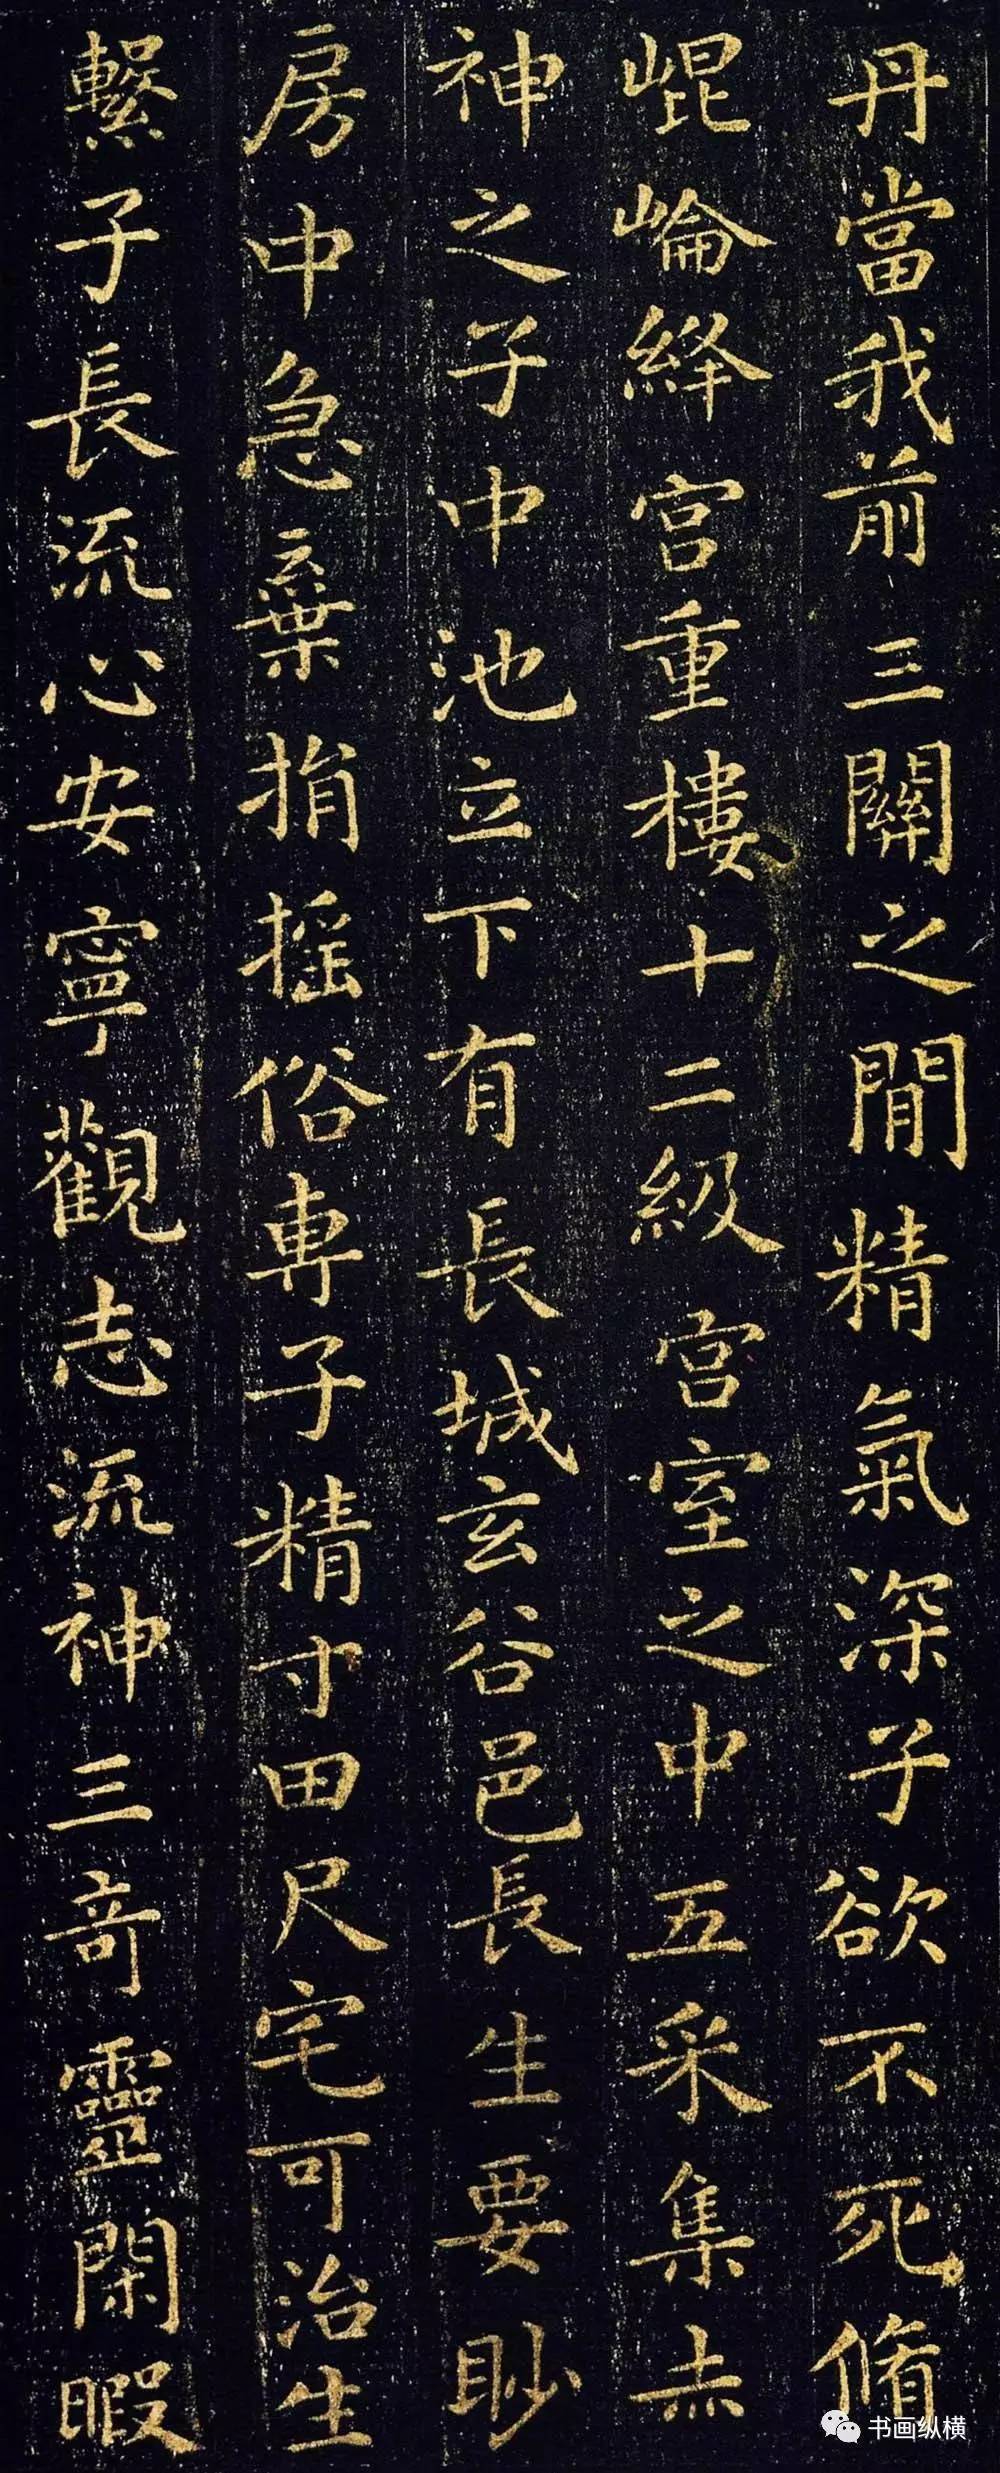 丹當我前三關之間精氣深子欲不死脩
崐崘絳宮重樓十二級宮室之中五采集赤
神之子中池立下有長城玄谷邑長生要眇
房中急棄捐搖俗專子精寸田尺宅可治生
繫子長流心安寧觀志流神三奇靈閑暇
书画纵横